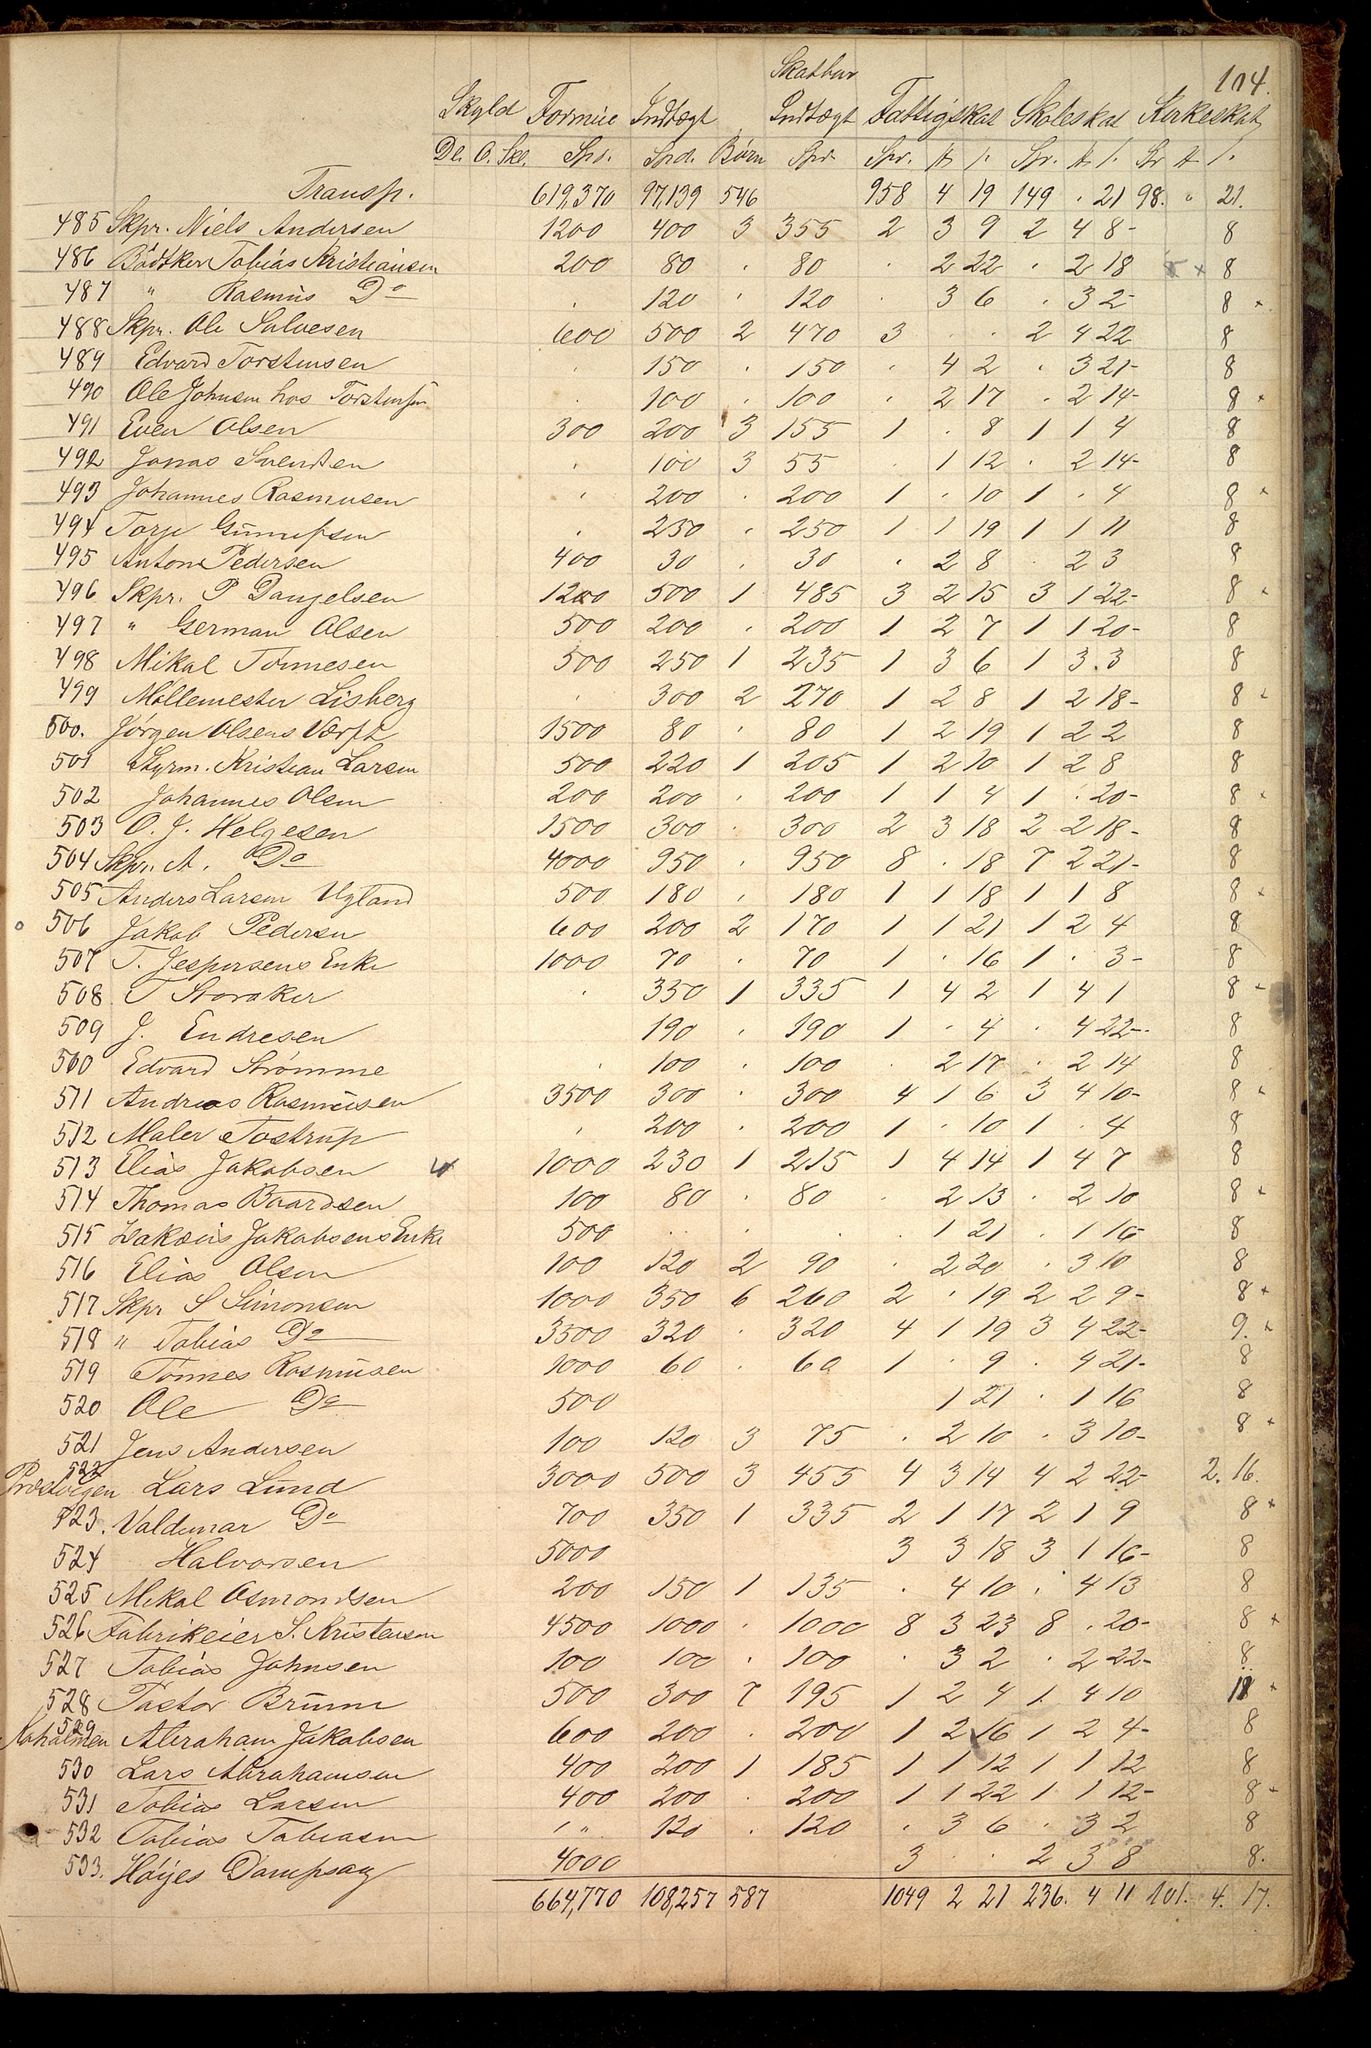 104.
Skatbar
Skyld Formue Indtægt Indtægt Fattigskat Skoleskat Kirkeskat
Dl. O. Sk. Spd. Spd. Børn Spr. Spr. # /. Spr. # /. Sr # /.
Transp. 619,370 97,139 546 958 4 19 149 . 21 98. " 21.
485 Skpr. Niels Andersen 1200 400 3 355 2 3 9 2 4 8- 8
486 Bödtker Tobias Kristiansen 200 80 . 80 . 2 22 . 2 18 8
487 " Rasmus Do . 120 . 120 . 3 6 . 3 2- 8
488 Skpr. Ole Salvesen 600 500 2 470 3 . . 2 4 22 8
489 Edvard Torstensen . 150 . 150 . 4 2 . 3 21- 8
490 Ole Johnsen hos Torstensen . 100 . 100 . 2 17 . 2 14- 8
491 Even Olsen 300 200 3 155 1 . 8 1 1 4 8
492 Jonas Svendsen . 100 3 55 . 1 12 . 2 14- 8
493 Johannes Rasmusen . 200 . 200 1 . 10 1 . 4 8
494 Torje Gunnufsen . 250 . 250 1 1 19 1 1 11 8
495 Anton Pedersen 400 30 . 30 . 2 8 . 2 3 8
496 Skpr. P Danjelsen 1200 500 1 485 3 2 15 3 1 22- 8
497 " German Olsen 500 200 . 200 1 2 7 1 1 20- 8
498 Mikal Tönnesen 500 250 1 235 1 3 6 1 3.3 8
499 Møllemester Lisberg . 300 2 270 1 2 8 1 2 18- 8
500. Jørgen Olsens Værft 1500 80 . 80 1 2 19 1 2 2 8
501 Styrm. Kristian Larsen 500 220 1 205 1 2 10 1 2 8 8
502 Johannes Olsen 200 200 . 200 1 1 4 1 . 20- 8
503 O. J. Helgesen 1500 300 . 300 2 3 18 2 2 18- 8
504 Skpr. A. Do 4000 950 . 950 8 . 18 7 2 21- 8
505 Anders Larsen Ugland 500 180 . 180 1 1 18 1 1 8 8
506 Jakob Pedersen 600 200 2 170 1 1 21 1 2 4 8
507 T. Jespersens Enke 1000 70 . 70 1 . 16 1 . 3- 8
508. T Storaker . 350 1 335 1 4 2 1 4 1 8
509 J. Endresen 190 . 190 1 . 4 . 4 22- 8
510 Edvard Strømme . 100 . 100 . 2 17 . 2 14 8
511 Andreas Rasmusen 3500 300 . 300 4 1 6 3 4 10- 8
512 Maler Tostrup . 200 . 200 1 . 10 1 . 4 8
513 Elias Jakobsen 1000 230 1 215 1 4 14 1 4 7 8
514 Thomas Baardsen 100 80 . 80 . 2 13 . 2 10 8
515 Zakæus Jakobsens Enke 500 . . . . 1 21 . 1 16 8
516 Elias Olsen 100 120 2 90 . 2 20 . 3 10 8
517 Skpr S Simonsen 1000 350 6 260 2 . 19 2 2 9- 8
518 " Tobias Do 3500 320 . 320 4 1 19 3 4 22- 9.
519 Tönnes Rasmusen 1000 60 . 60 1 . 9 . 4 21- 8
520 Ole Do 500 1 21 . 1 16 8
521 Jens Andersen 100 120 3 75 . 2 10 . 3 10- 8
522
Lars Lund 3000 500 3 455 4 3 14 4 2 22- 2. 16.
523. Valdemar Do 700 350 1 335 2 1 17 2 1 9 8
524 Halvorsen 5000 3 3 18 3 1 16- 8
525 Mikal Osmondsen 200 150 1 135 . 4 10 . 4 13 8
526 Fabrikeier S. Kristensen 4500 1000 . 1000 8 3 23 8 . 20- 8
527 Tobias Johnsen 100 100 . 100 . 3 2 . 2 22- 8
528 Pastor Bruun 500 300 7 195 1 2 4 1 4 10
529
Abraham Jakobsen 600 200 . 200 1 2 16 1 2 4- 8
530 Lars Abrahamsen 400 200 1 185 1 1 12 1 1 12 8
531 Tobias Larsen 400 200 . 200 1 1 22 1 1 12- 8
532 Tobias Tobiasen " 120 . 120 . 3 6 . 3 2 8
533. Høyes Dampsag 4000 3 . . 2 3 8 8.
664,770 108,257 587 1049 2 21 236. 4 11 101. 4. 17.